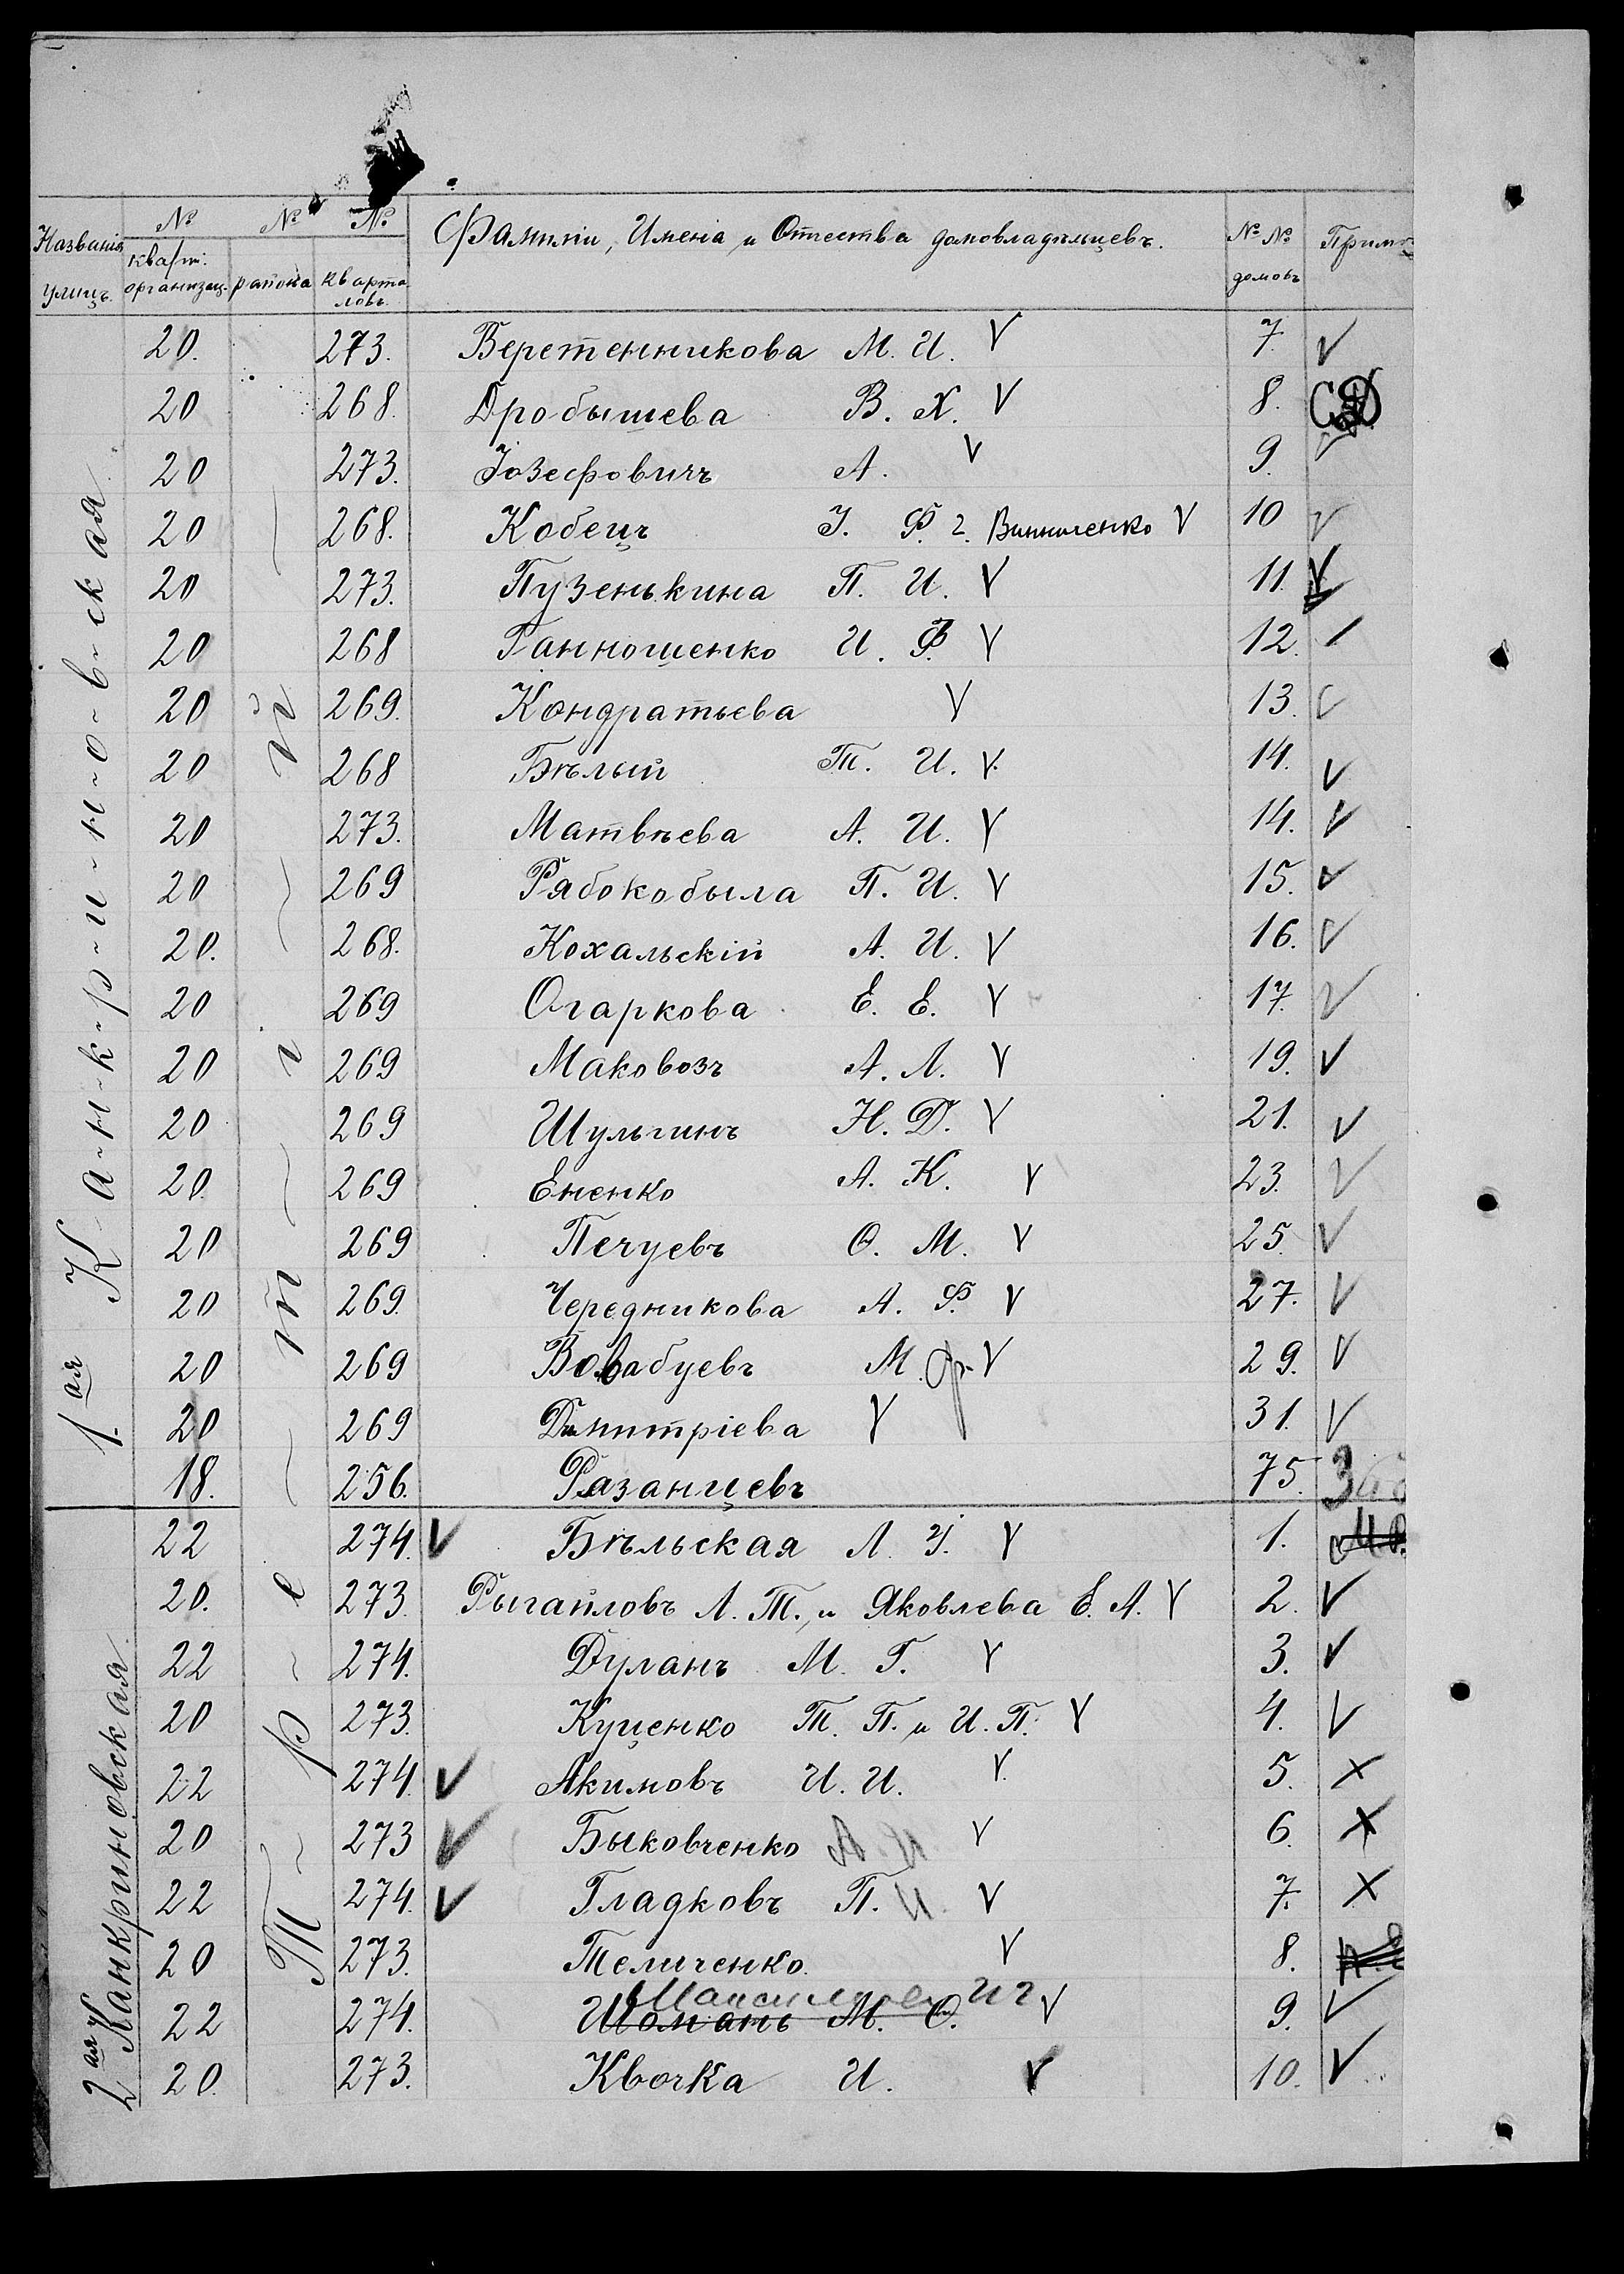 Названія улицъ. № кварт. организац. № района № кварталовъ. Фамиліи, Имена и Отчества домовладѣльцевъ. №№ домовъ Примѣ
1ая Канкриновская
Третій
20. 273. Веретенникова М. И. V 7. V
20 268. Дробышева В. Х. V 8.
20 273. Іозефовичъ А. V 9. V
20 268. Кобецъ І. Ф. 2. Винниченко V 10 V
20 273. Пузенькина П. И. V 11. V
20 268 Ганношенко И. Ф. V 12.
20 269. Кондратьева V 13. V
20 268 Бѣлый Т. И. V. 14. V
20 273. Матвѣева А. И. V 14. V
20 269 Рябокобыла П. И. V 15. V
20. 268. Кохальскій А. И. V 16. V
20 269 Огаркова Е. Е. V 17. V
20 269 Маковозъ А. Л. V 19. V
20 269 Шульгинъ Н. Д. V 21. V
20. 269 Ененко А. К. V 23. V
20 269 Печуевъ Ѳ. М. V 25. V
20 269. Чередникова А. Ф. V 27. V
20 269 М. Ф. V 29. V
20 269 Дмитріева V 31. V
18. 256. Рязанцевъ 75.
2ая Канкриновская
22 274. V Бѣльская Л. І. V 1.
20. 273. Рыгайловъ Л. Т., и Яковлева Е. А. V 2. V
22 274. Дуланъ М. Г. V 3. V
20 273. Куценко Т. П. и И. П. V 4. V
22 274 V Акимовъ И. И. V. 5. X
20 273 V Быковченко А. И. V 6. X
22 274. V Гладковъ П. И. V 7. X
20 273. Теличенко. V 8.
22 274. Шоманъ М. Ѳ. V 9. V
20. 273. Квочка И. V 10. V